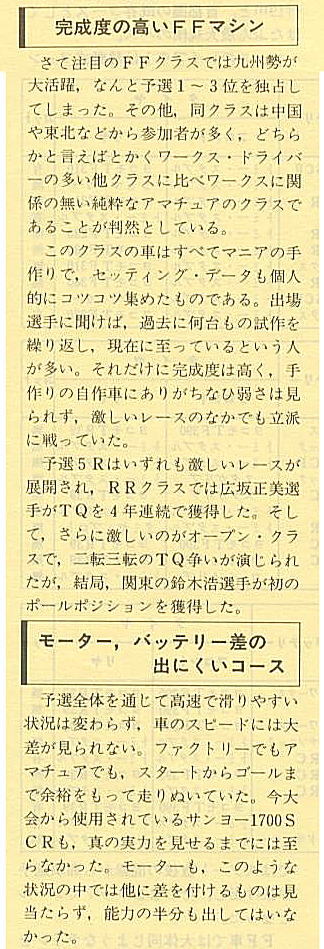 完成度の高いＦＦマシン
さて注目のＦＦクラスでは九州勢が
大活躍，なんと予選１～３位を独占し
てしまった。その他，同クラスは中国
や東北などから参加者が多く，どちら
かと言えばとかくワークス・ドライバ
ーの多い他クラスに比べワークスに関
係の無い純粋なアマチュアのクラスで
あることが判然としている。
このクラスの車はすべてマニアの手
作りで，セッティング・データも個人
的にコツコツ集めたものである。出場
選手に聞けば，過去に何台もの試作を
繰り返し，現在に至っているという人
が多い。それだけに完成度は高く，手
作りの自作車にありがちなひ弱さは見
られず，激しいレースのなかでも立派
に戦っていた。
予選５Ｒはいずれも激しいレースが
展開され，ＲＲクラスでは広坂正美選
手がＴＱを４年連続で獲得した。そし
て，さらに激しいのがオープン・クラ
スで，二転三転のＴＱ争いが演じられ
たが，結局，関東の鈴木浩選手が初の
ポールポジションを獲得した。
モーター，バッテリー差の
出にくいコース
予選全体を通じて高速で滑りやすい
状況は変わらず，車のスピードには大
差が見られない。ファクトリーでもア
マチュアでも，スタートからゴールま
で余裕をもって走りぬいていた。今大
会から使用されているサンヨー1700Ｓ
ＣＲも，真の実力を見せるまでには至
らなかった。モーターも，このような
状況の中では他に差を付けるものは見
当たらず，能力の半分も出してはいな
かった。